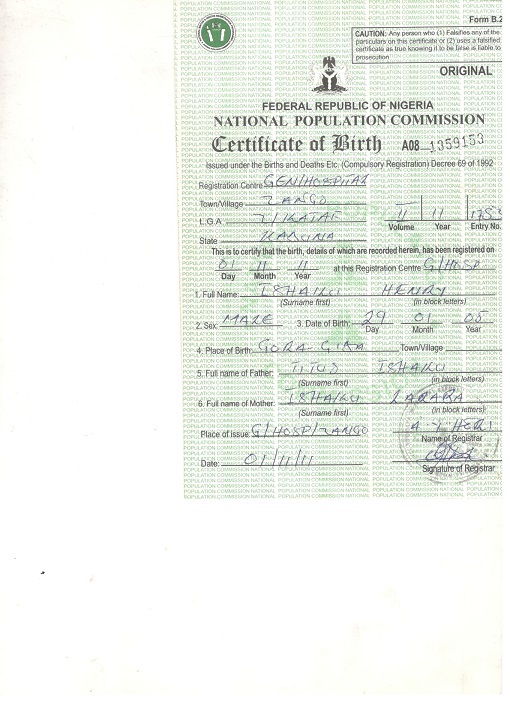 Form B.2
CAUTION: Any person who (1) Falsifies any of the
particulars on this certificate or (2) uses a falsified
certificate as true knowing it to be false is liable to
prosecution
ORIGINAL
FEDERAL REPUBLIC OF NIGERIA
NATIONAL POPULATION COMMISSION
Certificate of Birth A08 1359153
Issued under the Births and Deaths Etc. (Compulsory Registration) Decree 69 of 1992
Registration Centre GEN/HOSPITAL
Town/Village ZANGO
L.G.A Z/KATAF 11 11 1753
Volume Year Entry No.
State KADUNA
This is to certify that the birth, details of which are recorded herein, has been registered on
01 11 11 at this Registration Centre G/HOSP
Day Month Year
1. Full Name: ISHAIKU HENRY
(Surname first) (in block letters)
2. Sex: MALE 3. Date of Birth: 29 01 00
Day Month Year
4. Place of Birth: GORA GIRA Town/Village
5. Full name of Father: TITUS ISHAIKU
(Surname first) (in block letters)
6. Full name of Mother: ISHAIKU LARABA
(Surname first) (in block letters)
Place of issue: G/HOSP/ZANGO
Name of Registrar
Date: 01/11/11
Signature of Registrar